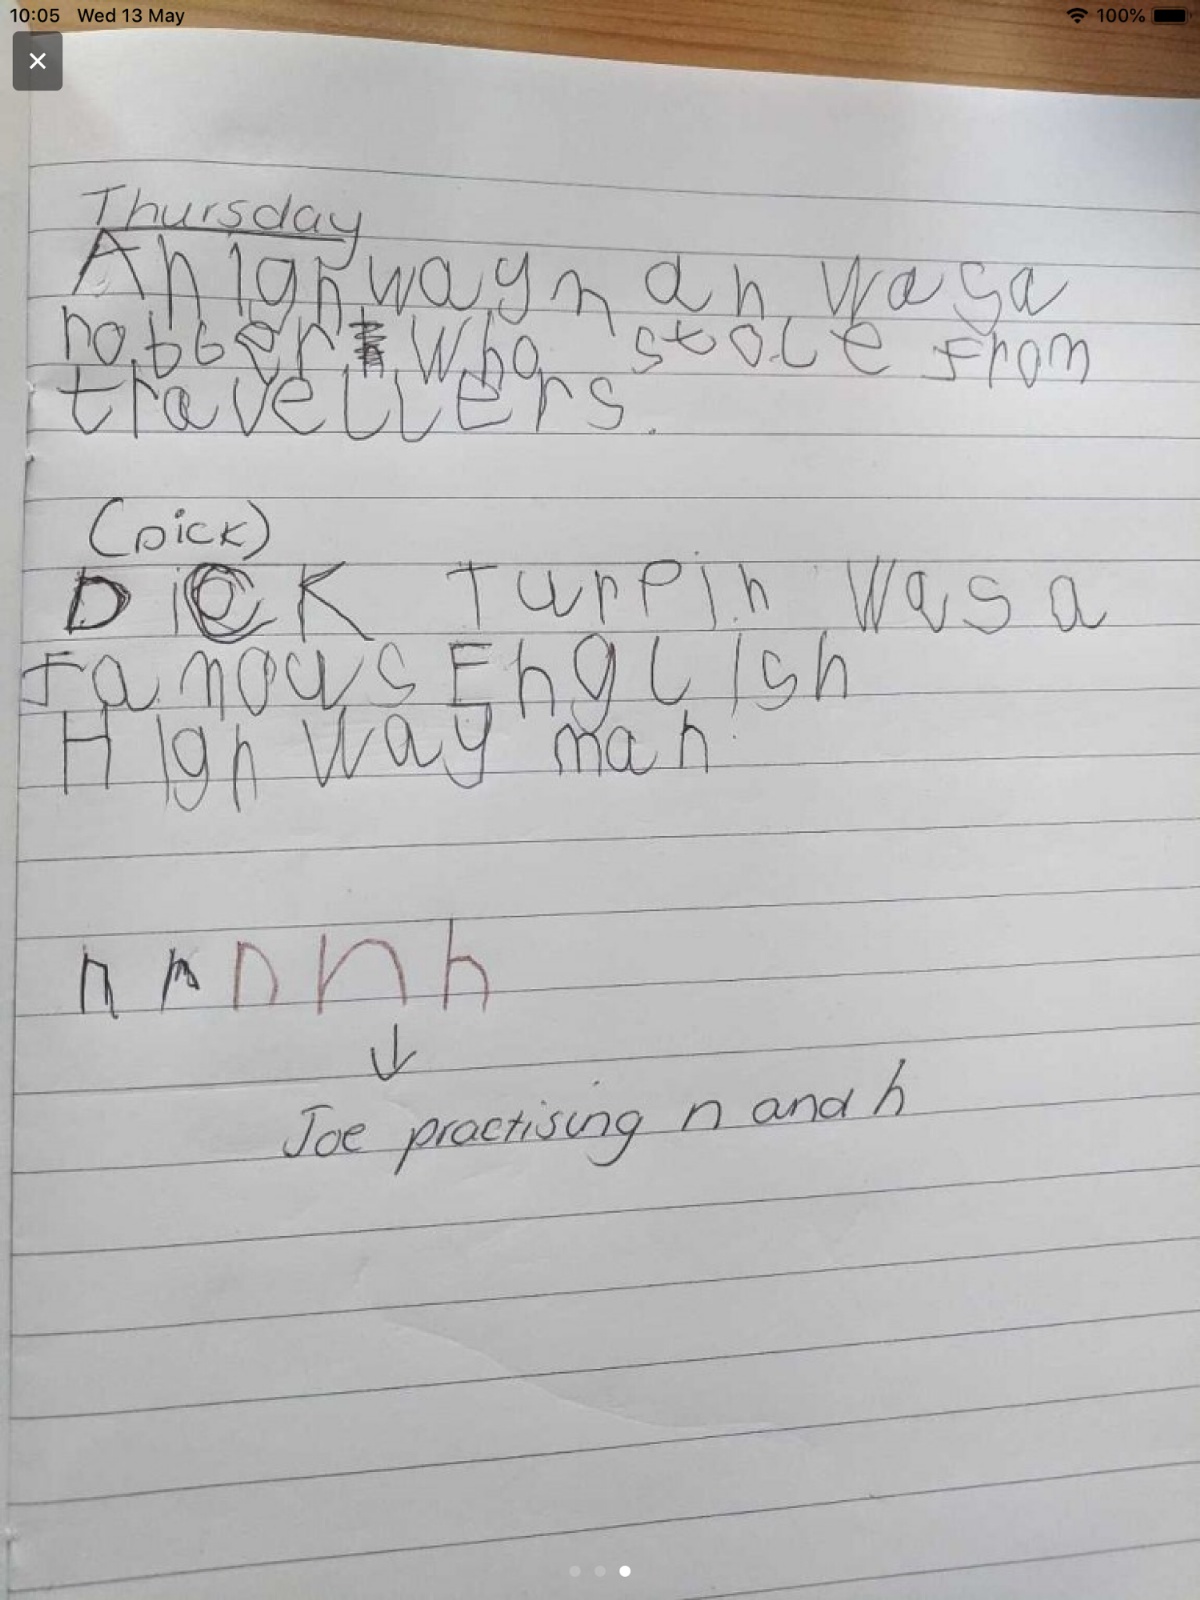 10:05 Wed 13 May
100%
Thursday
A highwayman was a
robber who stole from
travellers.
(Dick)
Dick Turpin was a
famous English
Highway man.
n n n n h
Joe practising n and h